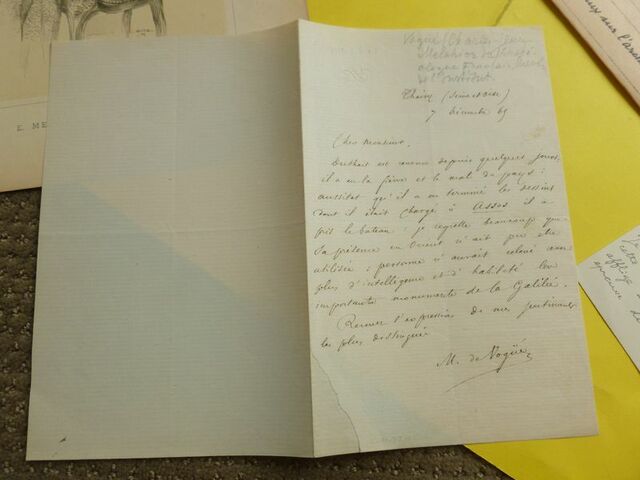 E. ME
Vogüé (Charles-Jean
Melchior de)
français
de l'Institut
(Seine et Oise)
7 Décembre 65
Cher Monsieur,
est revenu depuis quelques jours,
il a eu la fièvre et le mal du pays :
aussitôt qu'il a eu terminé les dessins
dont il était chargé à Assos il a
pris le bateau : je regrette beaucoup que
sa présence en Orient n'ait pu être
utilisée : personne n'aurait relevé avec
plus d'intelligence et d'habileté les
importants monuments de la Galilée.
Recevez l'expression de mes sentiments
les plus distingués
M. de Vogüé
sur l'ara